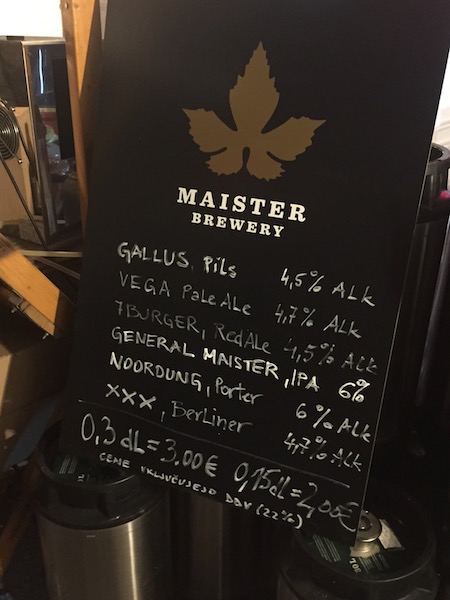 MAISTER
BREWERY
GALLUS, Pils 4,5% ALK
VEGA Pale Ale 4,7% ALK
7BURGER, Red Ale 4,5% ALK
GENERAL MAISTER, IPA 6%
NOORDUNG, Porter 6% ALK
XXX, Berliner 4,7% ALK
0,3 dL = 3.00€ 0,15dL = 2,00€
CENE VKLJUČUJEJO DDV (22%)